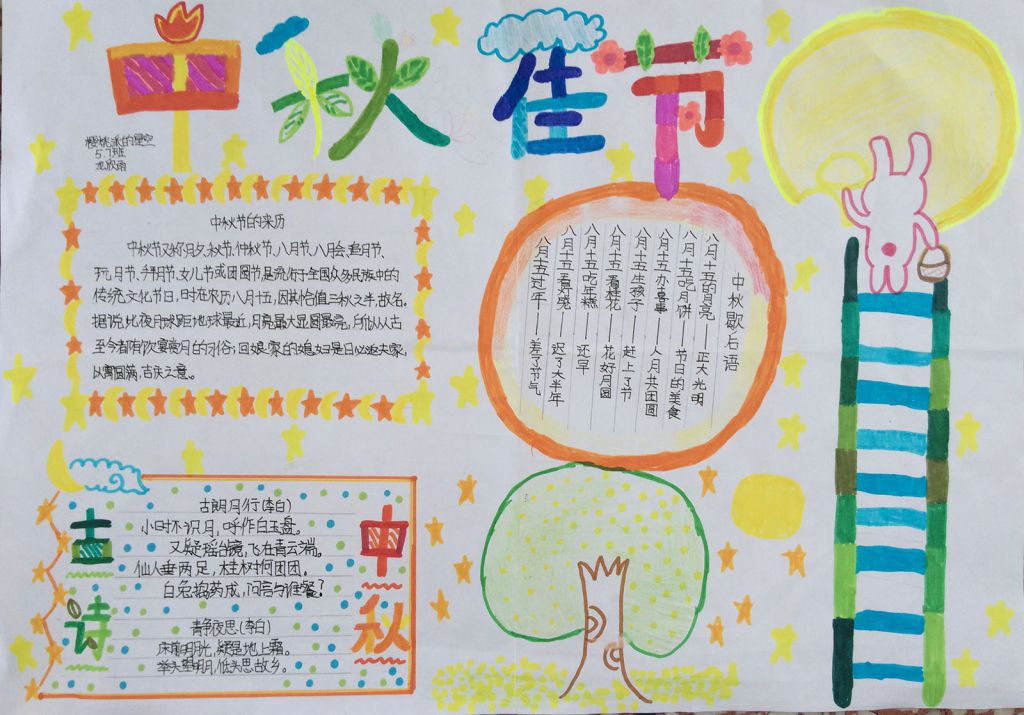 中秋佳节
5.7班
中秋节的来历
中秋节又称月夕、秋节、仲秋节、八月节、八月会、追月节、
玩月节、拜月节、女儿节或团圆节是流行于全国众多民族中的
传统文化节日,时在农历八月十五,因其恰值三秋之半,故名。
据说此夜月球距地球最近,月亮最大最圆最亮,所以从古
至今都有饮宴赏月的习俗;回娘家的媳妇是日必返夫家,
以寓圆满,吉庆之意。
中秋歇后语
八月十五的月亮——正大光明
八月十五吃月饼——节日的美食
八月十五办喜事——人月共团圆
八月十五生孩子——赶上了节
八月十五看桂花——花好月圆
八月十五吃年糕——还早
八月十五看灯——迟了大半年
八月十五过年——差了节气
古诗
中秋
古朗月行(李白)
小时不识月,呼作白玉盘。
又疑瑶台镜,飞在青云端。
仙人垂两足,桂树何团团。
白兔捣药成,问言与谁餐?
青争夜思(李白)
床前明月光,疑是地上霜。
举头望明月,低头思故乡。